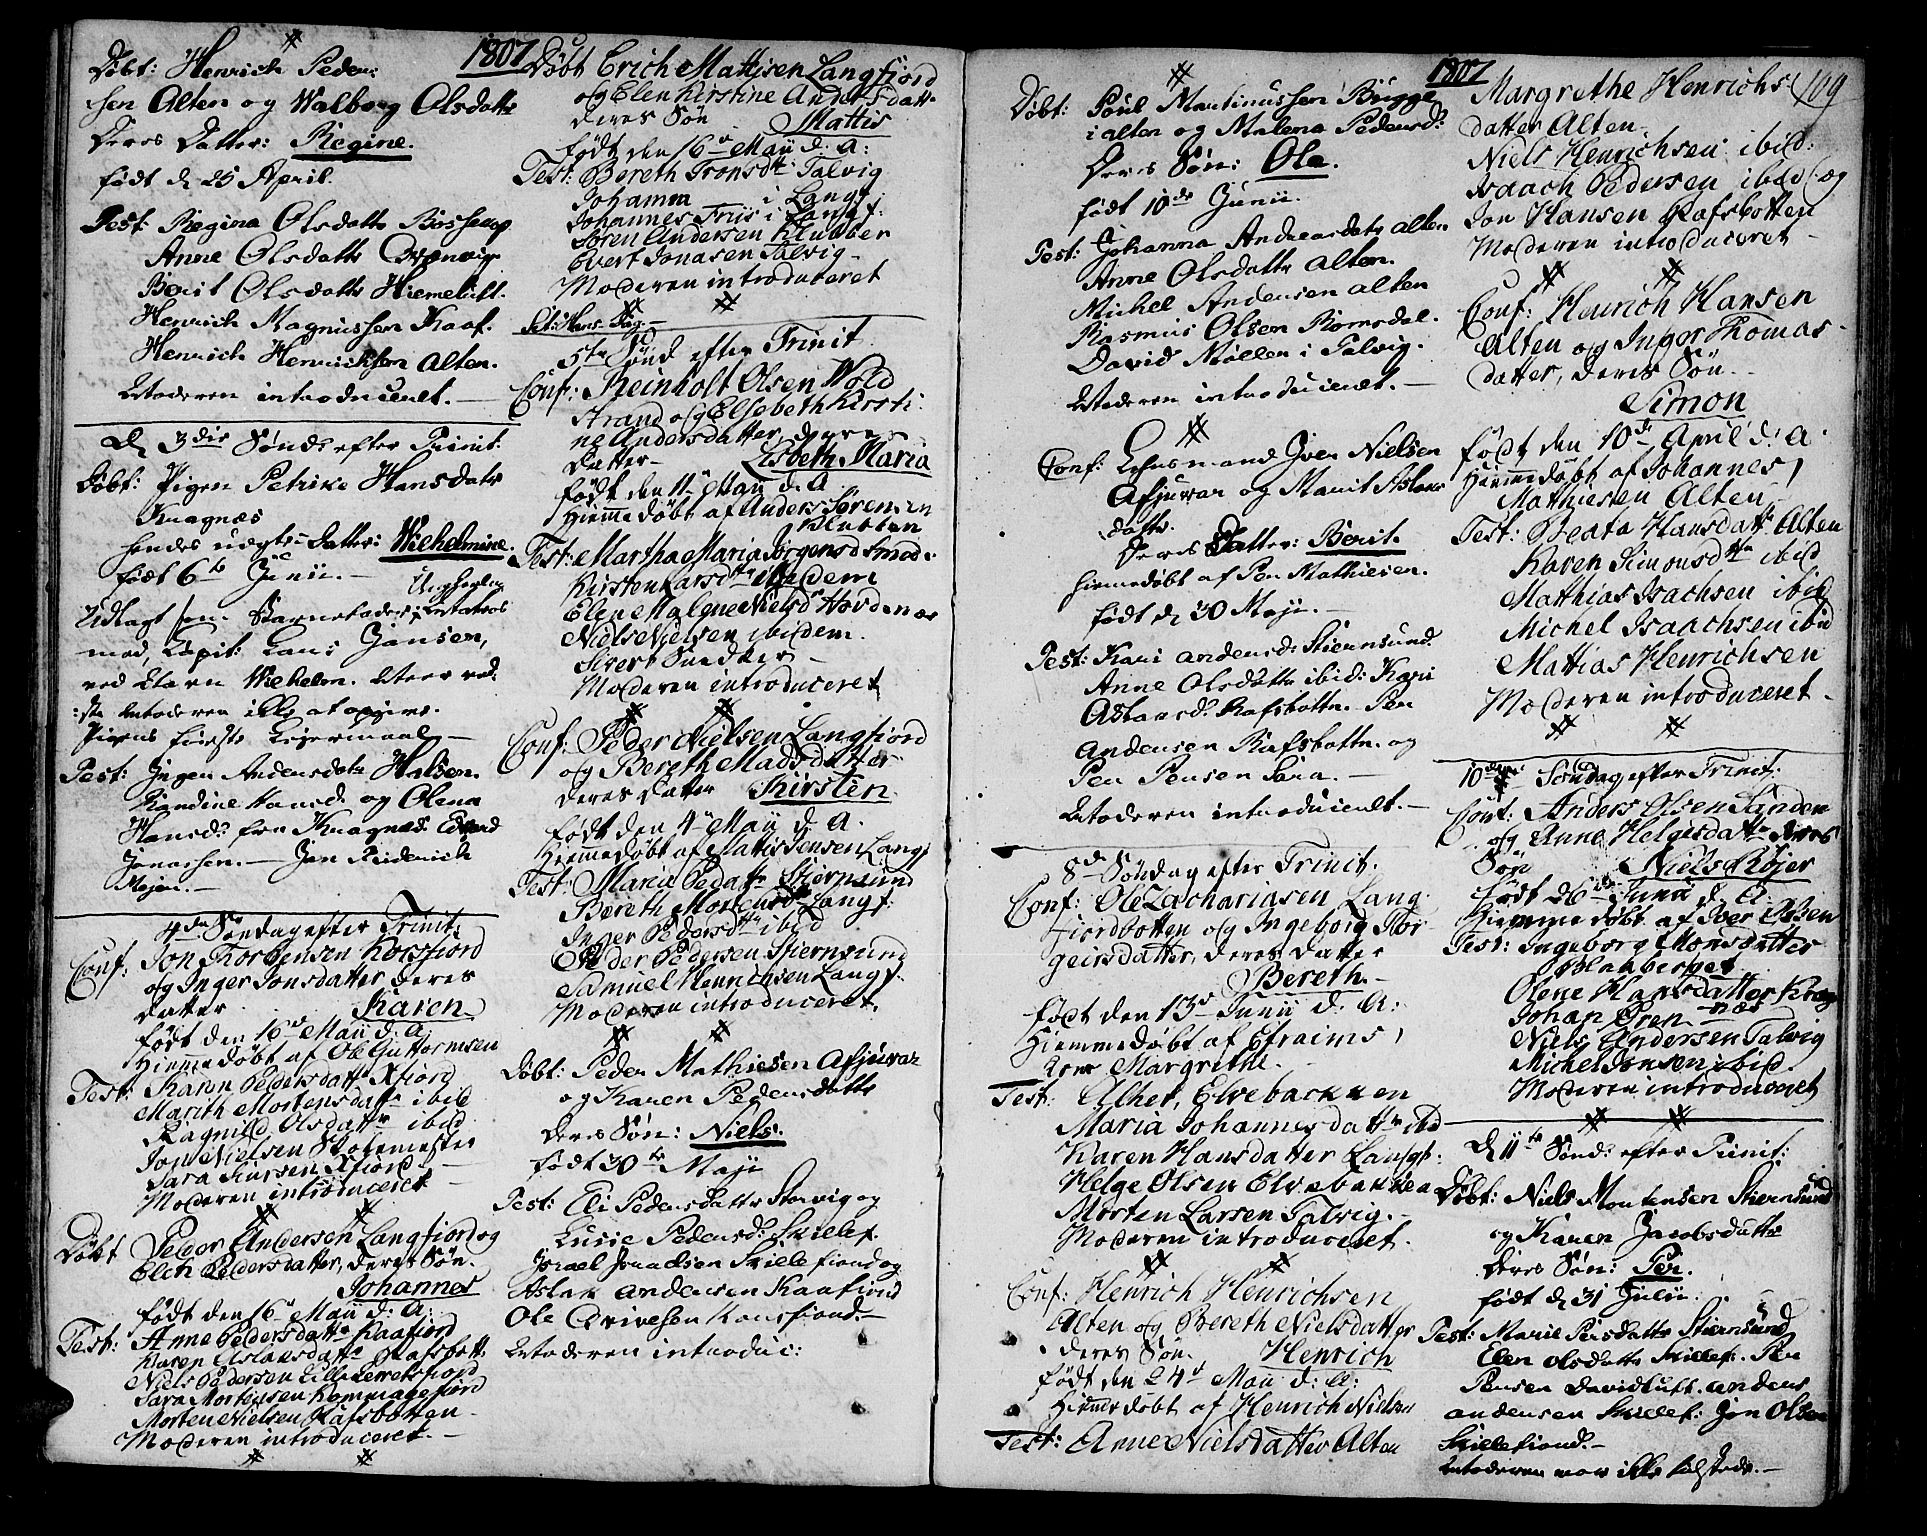 1807
Døbt: Henrich Peder-
sen Alten og Walborg Olsdattr
Deres Datter: Regine.
født d 25 April.
Test: Regina Olsdattr Bossekop
Anne Olsdattr Qvænvig
Berit Olsdattr Hiemeluft.
Henrich Magnussen Kaaf.
Henrich Henrichsen Alten.
Moderen introduceret. –
D 3die Sønd: efter Trinit:
Døbt: Pigen Petrike Hansdatr
Knagnæs
hendes uægte Datter: Wilhelmine.
født 6te Junii. –
Udlagt som Barnefader:
med, Capit: Lars Jansen,
ved Navn Wilhelm.
Moderen ikke at opgive.
Pigens første Leiermaal –
Test: Inger Andersdatr Halsen.
Randine Hansd. og Olena
Hansd: fra Knagnæs. Edvard
Jonassen. – Jon Friderich
Mejer. –
4de Søndag efter Trinit:
Conf: Jon Torbensen Korsfiord
og Inger Jonsdatter deres
Datter Karen
født den 16d Maii d. A.
Hiemmedøbt af Ole Guttormsen
Test: Karen Pedersdattr Xfiord
Marith Mortensdattr ibid
Ragnild Olsdattr ibid
Jon Nielsen Skolemester
Sara Iversen Xfiord
Moderen introduceret –
Døbt Peder Andersen Langfiord og
Elen Pedersdatter, deres Søn
Johannes
født den 16d Maii d: A:
Test: Anne Pedersdattr Kaafiord
Karen Aslaksdattr Rafsbott:
Niels Pedersen Lille Lerretsfiord
Sara Mortensen Kommagefiord
Morten Nielsen Rafsbotten –
Moderen introduceret. –
Døbt Erich Mattisen Langfiord
og Elen Kirstine Andersdattr
deres Søn Mattis
født den 16d Maii d: A:
Test: Bereth Tronsdttr Talvig
Johanna i Langf
Johannes Friis i Langf:
Søren Andersen Klubben
Evert Jonasen Talvig –
Moderen introduceret
St: Hans Dag. –
5te Sønd efter Trinit.
Conf: Reinholt Olsen Wold
Strand og Elsebeth Kirsti-
ne Andersdatter deres
Datter – Lisbeth Maria
født den 11d Maii d. A.
Hiemmedøbt af Anders Sørensen
Klubben
Test: Martha Maria Jørgensd
Kirsten Larsdttr ibidem
Elen Malene Nielsd Hordenæs
Niels Nielsen ibidem.
Sivert –
Moderen introduceret
Conf: Peder Nielsen Langfiord
og Bereth Madsdatter
deres Datter Kirsten
født den 4d Maii d. A.
Hiemmedøbt af Mattis Jensen Langf
Test: Maria Pedattr Stiernsund
Bereth Mortensdttr Langf:
Inger Pedersdttr ibid
Peder Pedersen Stiernsund
Samuel Henrichsen Langf.
Moderen introduceret.
Døbt: Peder Mathiesen Afjuvar
og Karen Pedersdattr
deres Søn: Niels.
født 30te Maji
Test: Eli Pedersdattr Storvig og
Lusie Pedersd: Skillef.
Israel Isaacsen Skillefiord og
Aslak Andersen Kaafiord
Ole Korsfiord. –
Moderen introduc:
1807
109
Døbt: Poul Martinussen Bugge
i Alten og Malena Pedersd:
Deres Søn: Ole.
født 10de Junii.
Test: Johanna Andreasdatr Alten
Anne Olsdattr Alten.
Michel Andersen Alten
Rasmus Olsen Romsdal.
David Møller i Talvig.
Moderen introduceret. –
Conf: Lehnsmand Iver Nielsen
Afjuvar og Marit Aslaks
datter.
Deres Datter: Berit.
hiemmedøbt af Per Mathiesen.
født d 30 Maji. –
Test: Kari Andersd: Stiernsund
Anne Olsdattr ibid: Kari
Aslaksd: Rafsbottn. Per
Andersen Rafsbottn. og
Per Persen Sara. –
Moderen introduceret. –
8de Søndag efter Trinit.
Conf: Ole Zachariasen Lang-
fiordbotten og Ingeborg Tor-
geirsdatter, deres Datter
Bereth. –
født den 13d Junii d: A:
Hiemmedøbt af Efraims
Kone Margrethe.
Test: Alhet, Elvebacken
Maria Johannesdattr ibd
Karen Hansdatter Langf:
Helge Olsen Elvebakken
Morten Larsen Talvig. –
Moderen introduceret.
Conf: Henrich Henrichsen
Alten og Bereth Nielsdatter
deres Søn. Henrich
født den 24d Maii d: A:
Hiemmedøbt af Henrich Nielsen
Test: Anne Nielsdatter Alten
Margrethe Henrichs-
datter Alten
Niels Henrichsen ibid:
Isaach Pedersen ibid og
Jon Hansen Rafsbotten
Moderen introduceret –
Conf: Henrich Hansen
Alten og Inger Thomas-
datter, deres Søn.
Simon
født den 10de April d: A.
Hiemmedøbt af Johannes
Mathiesen Alten
Test: Beata Hansdattr Alten
Karen Simonsdttr ibid
Matthias Isachsen ibid
Michel Isaachsen ibid
Mattias Henrichsen
Moderen introduceret –
10de Søndag efter Trinit:
Conf: Anders Olsen Sanden
og Anne Helgesdattr deres
Søn Niels Røjer
født 26de Junii d. A.
Hiemmedøbt af Iver Olsen
Test: Ingeborg Monsdatter
Blaaberget
Olene Hansdatter Krag-
næs
Johan Ören
Niels Andersen Talvig
Michel Jonsen ibid.
Moderen introduceret
D 11te Sønd: efter Trinit:
Døbt: Niels Mortensen Stiernsund
og Karen Jacobsdattr
deres Søn: Per.
født d 31 Julii.
Test: Marie Persdattr Stiernsund
Elen Olsdattr Skillef. Per
Persen Davidluft. Anders
Andersen Skillef: Jon Olsen
Skillefiord. –
Moderen var ikke tilstede. –